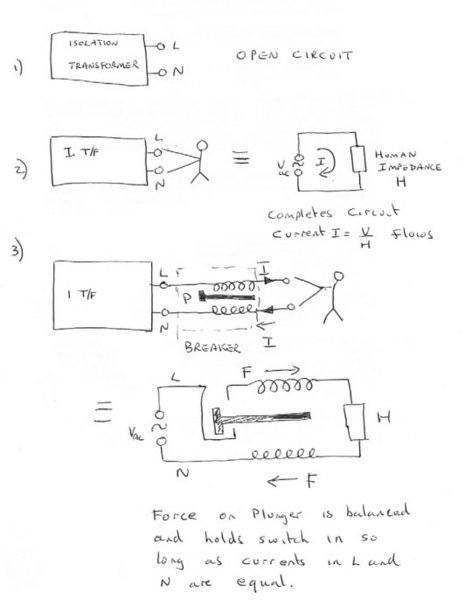 1)
ISOLATION
TRANSFORMER
L
N
OPEN CIRCUIT
2)
I. T/F
L
N
≡
V
ac
I
HUMAN
IMPEDANCE
H
Completes Circuit
Current I = V/H flows
3)
I T/F
L
N
P
I
I
BREAKER
≡
L
F →
Vac
H
N
← F
Force on Plunger is balanced
and holds switch in so
long as currents in L and
N are equal.